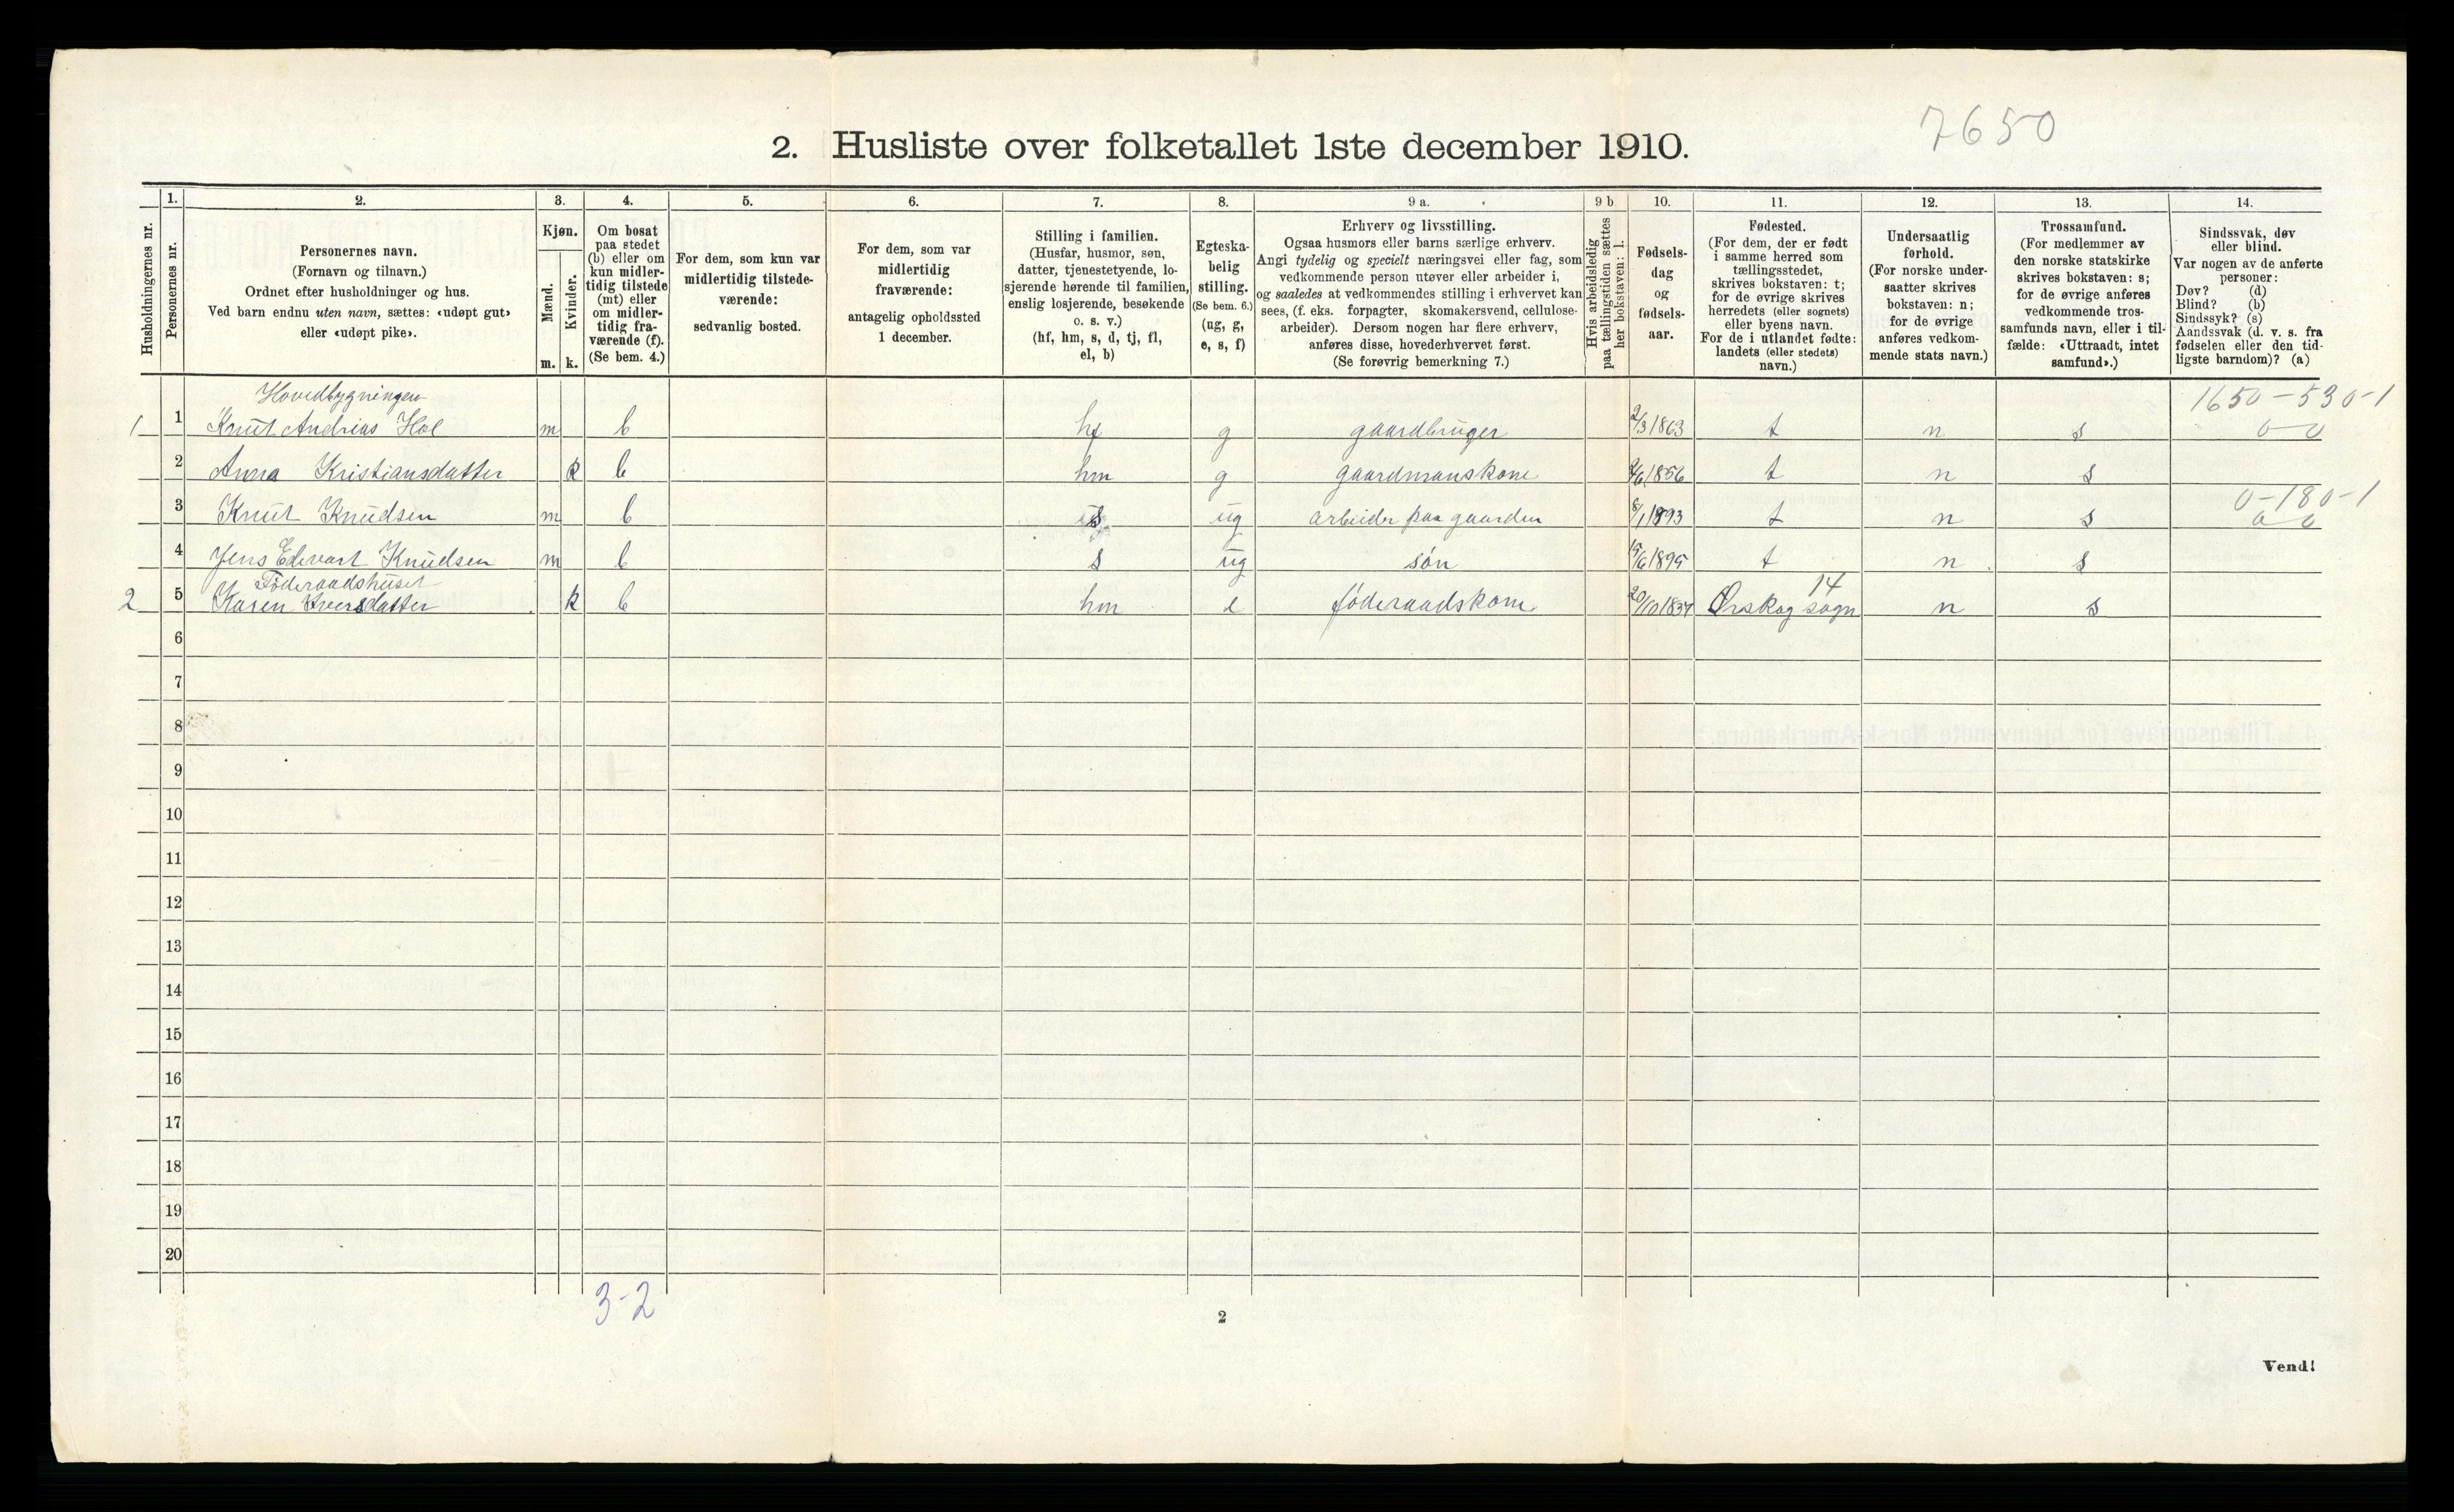 7650
2. Husliste over folketallet 1ste december 1910.
Husholdningernes nr.
1.
Personernes nr.
2.
Personernes navn.
(Fornavn og tilnavn.)
Ordnet efter husholdninger og hus.
Ved barn endnu uten navn, sættes: «udøpt gut»
eller «udøpt pike».
3.
Kjøn.
Mænd.
Kvinder.
m. k.
4.
Om bosat
paa stedet
(b) eller om
kun midler-
tidig tilstede
(mt) eller
om midler-
tidig fra-
værende (f).
(Se bem. 4.)
5.
For dem, som kun var
midlertidig tilstede-
værende:
sedvanlig bosted.
6.
For dem, som var
midlertidig
fraværende:
antagelig opholdssted
1 december.
7.
Stilling i familien.
(Husfar, husmor, søn,
datter, tjenestetyende, lo-
sjerende hørende til familien,
enslig losjerende, besøkende
o. s. v.)
(hf, hm, s, d, tj, fl,
el, b)
8.
Egteska-
belig
stilling.
(Se bem. 6.)
(ug, g,
e, s, f)
9 a.
Erhverv og livsstilling.
Ogsaa husmors eller barns særlige erhverv.
Angi tydelig og specielt næringsvei eller fag, som
vedkommende person utøver eller arbeider i,
og saaledes at vedkommendes stilling i erhvervet kan
sees, (f. eks. forpagter, skomakersvend, cellulose-
arbeider). Dersom nogen har flere erhverv,
anføres disse, hovederhvervet først.
(Se forøvrig bemerkning 7.)
9 b
Hvis arbeidsledig
paa tællingstiden sættes
her bokstaven: l.
10.
Fødsels-
dag
og
fødsels-
aar.
11.
Fødested.
(For dem, der er født
i samme herred som
tællingsstedet,
skrives bokstaven: t;
for de øvrige skrives
herredets (eller sognets)
eller byens navn.
For de i utlandet fødte:
landets (eller stedets)
navn.)
12.
Undersaatlig
forhold.
(For norske under-
saatter skrives
bokstaven: n;
for de øvrige
anføres vedkom-
mende stats navn.)
13.
Trossamfund.
(For medlemmer av
den norske statskirke
skrives bokstaven: s;
for de øvrige anføres
vedkommende tros-
samfunds navn, eller i til-
fælde: «Uttraadt, intet
samfund».)
14.
Sindssvak, døv
eller blind.
Var nogen av de anførte
personer:
Døv? (d)
Blind? (b)
Sindssyk? (s)
Aandssvak (d. v. s. fra
fødselen eller den tid-
ligste barndom)? (a)
Hovedbygningen 1650-530-1
1 1 Knut Andrias Hol m b hf g gaardbruger 2/3 1863 t n s 0-0
2 Anna Kristiansdatter k b hm g gaardmanskone 1856 t n s
0-180-1
3 Knut Knudsen m b s ug arbeider paa gaarden 8/1 1893 t n s 0 0
4 Jens Edvart Knudsen m b s ug søn 15/6 1895 t n s
Föderaadshuset 14
2 5 Karen Iversdatter k b hm e föderaadskone 20/10 1837 Ørskog sogn n s
6
7
8
9
10
11
12
13
14
15
16
17
18
19
20
3-2
2
Vend!